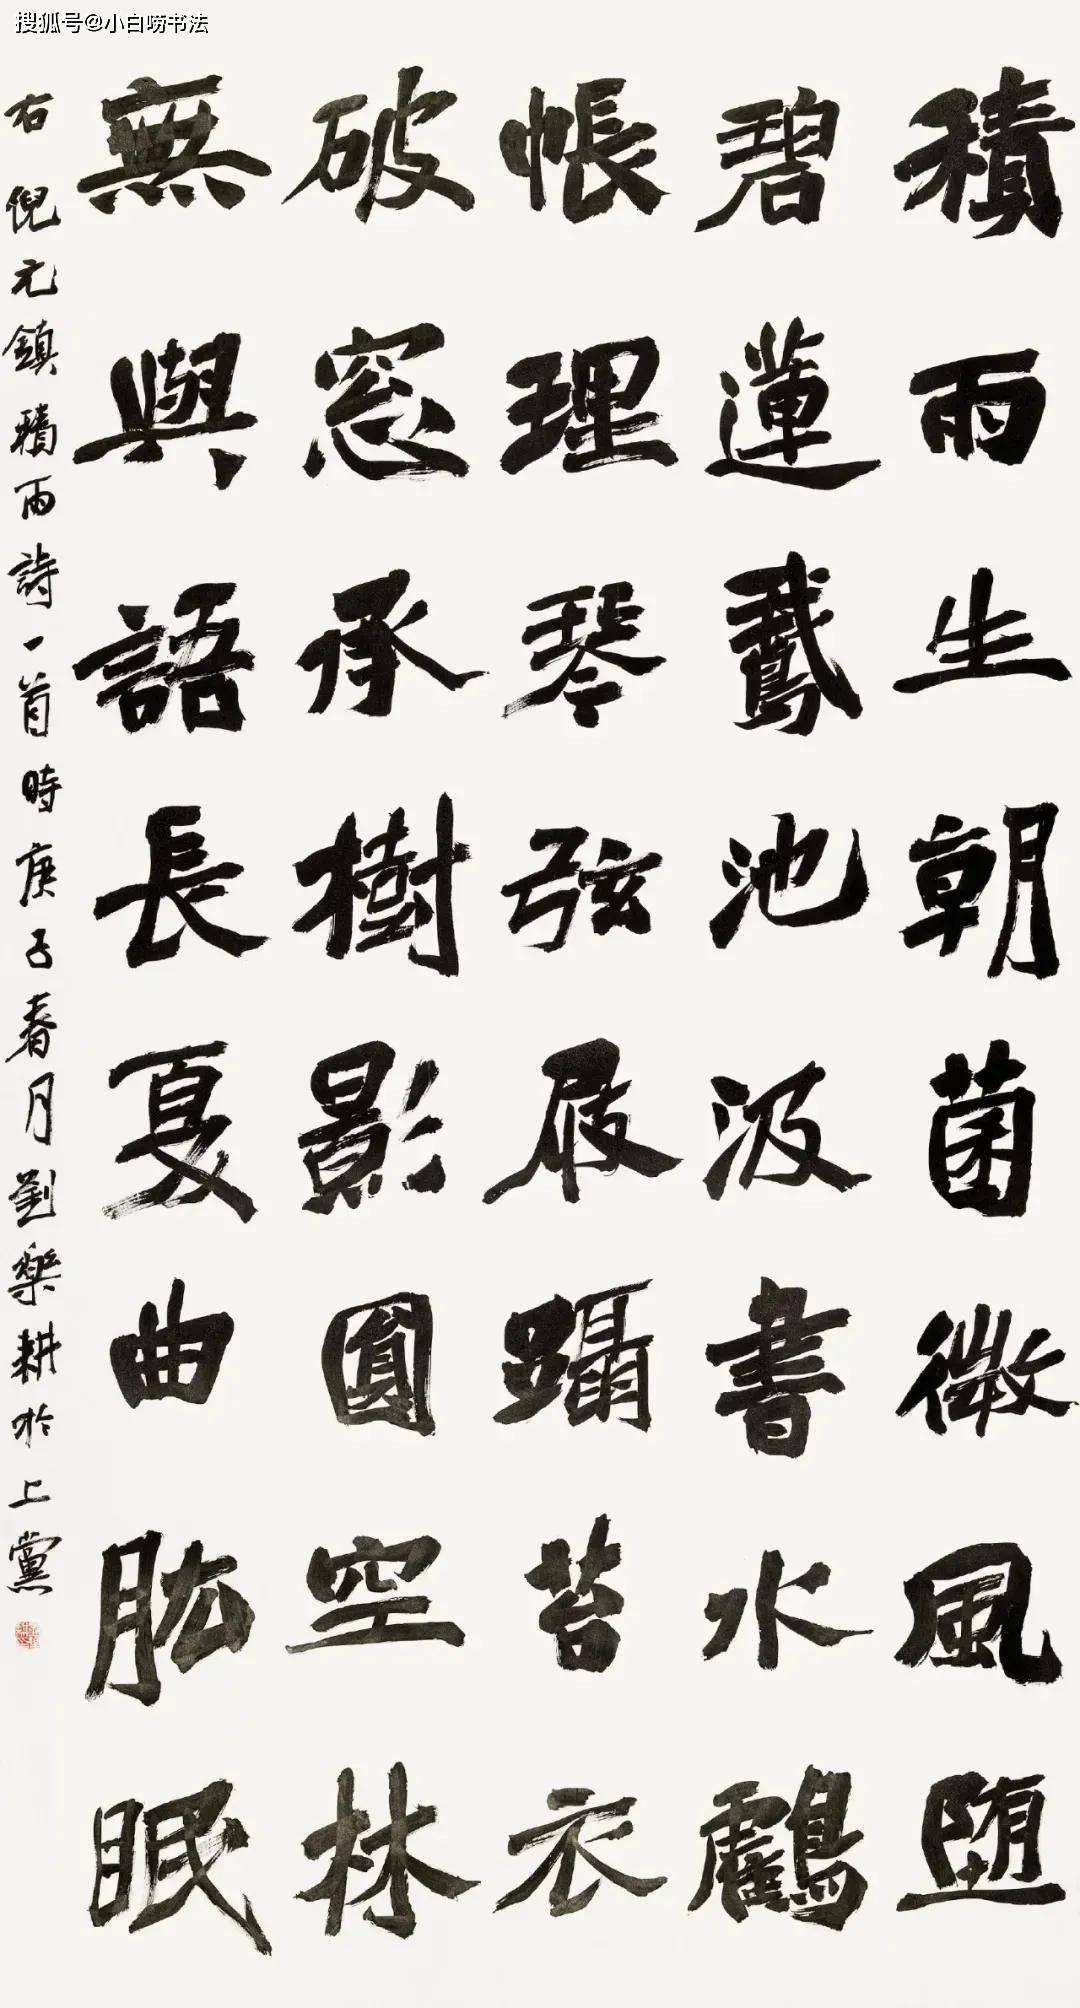 搜狐号@小白唠书法
積雨生朝菌微風堕
碧蓮鵞池汲書水鸖
帳理琴弦屐躡苔衣
破窓承樹影圓空林
無與語長夏曲肱眠
右倪元鎮積雨詩一首時庚子春月劉樂耕於上黨